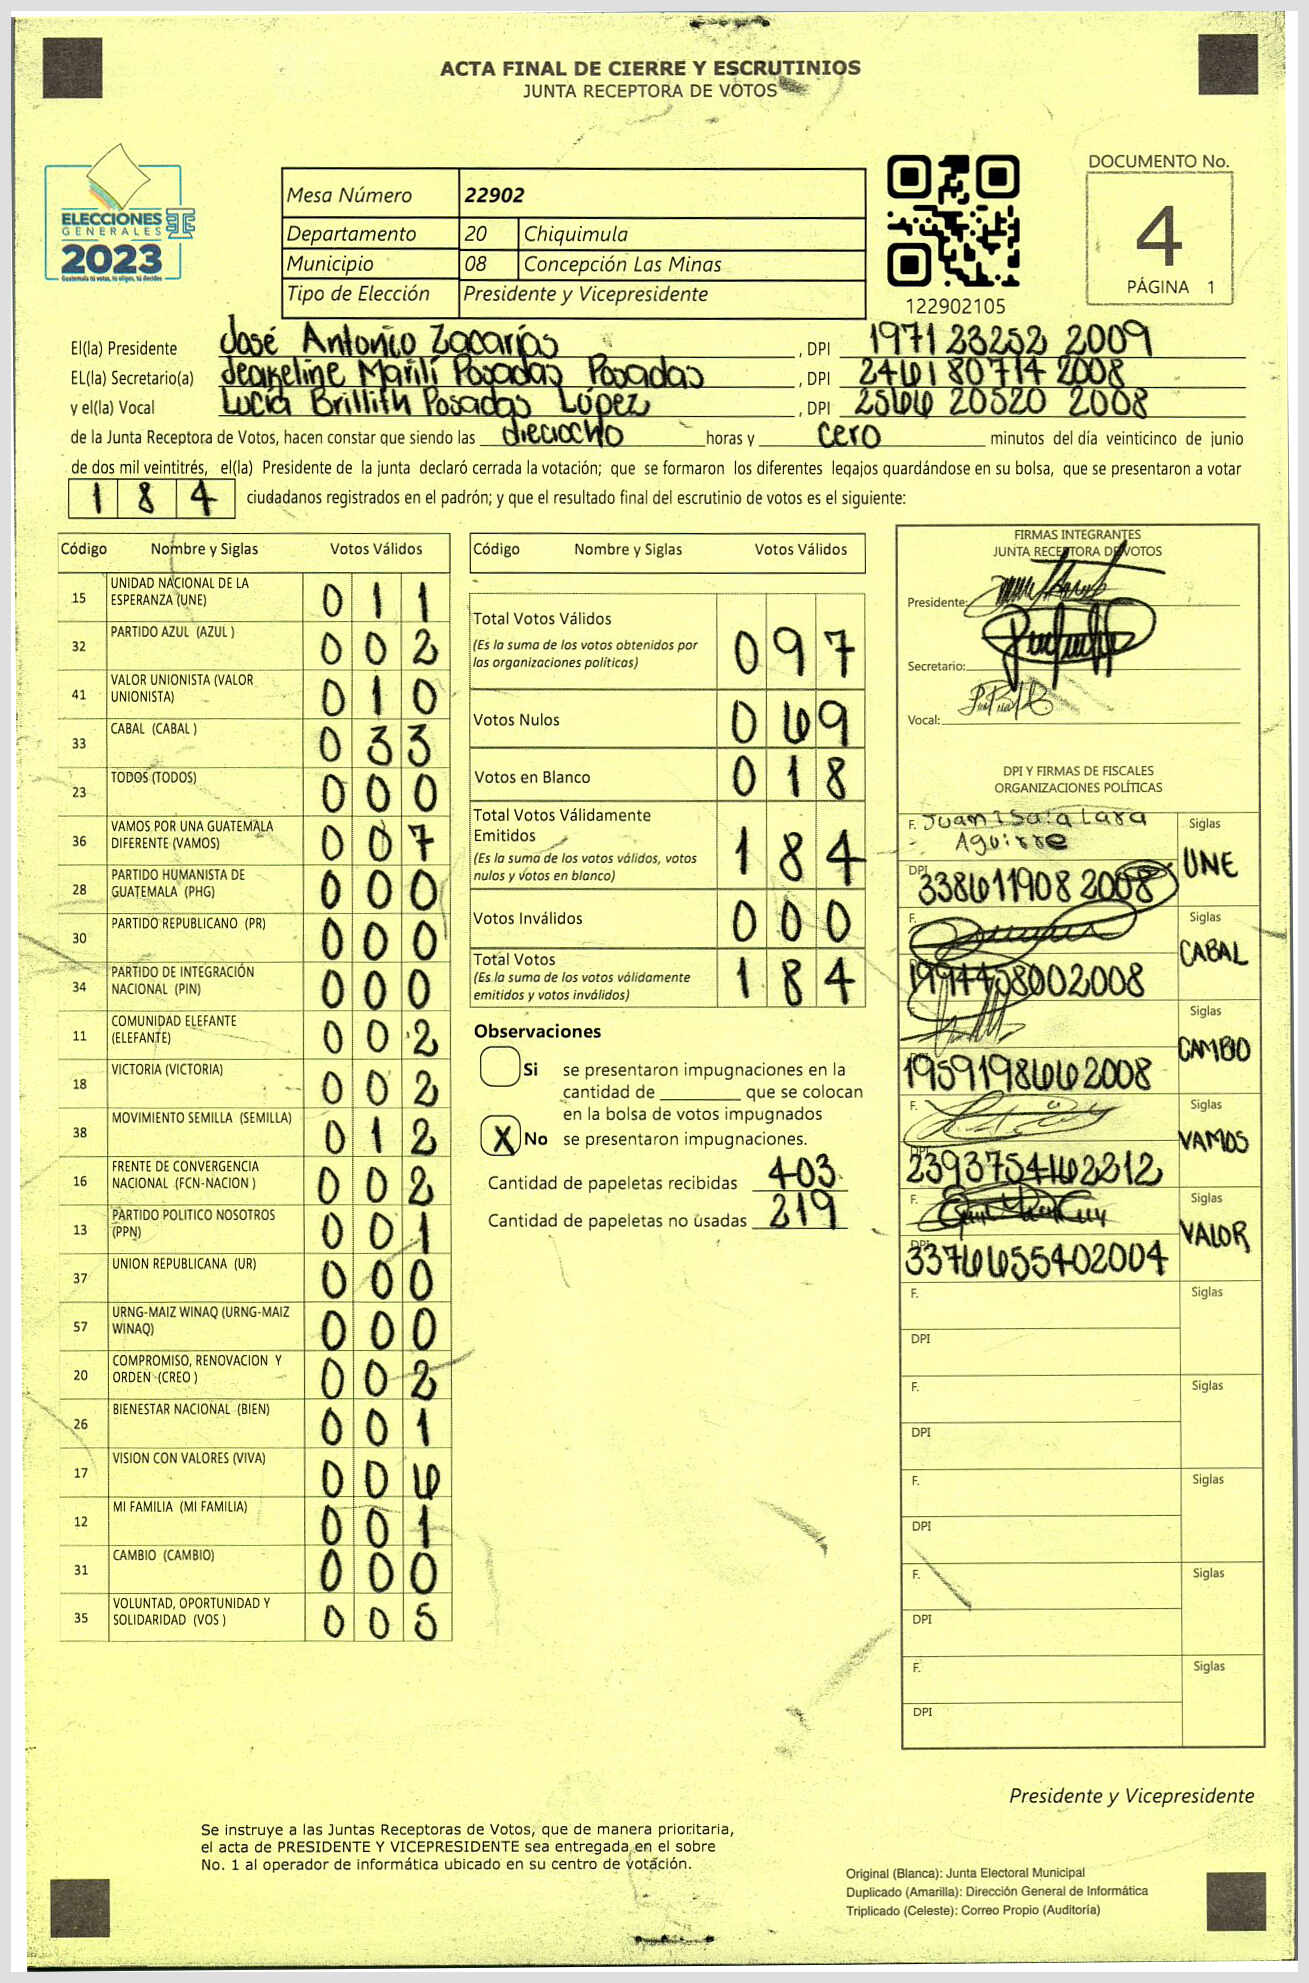 ACTA FINAL DE CIERRE Y ESCRUTINIOS
JUNTA RECEPTORA DE VOTOS
ELECCIONES
GENERALES
2023
Guatemala tú votas, tú eliges, tú decides
Mesa Número 22902
Departamento 20 Chiquimula
Municipio 08 Concepción Las Minas
Tipo de Elección Presidente y Vicepresidente
122902105
DOCUMENTO No.
4
PÁGINA 1
El(la) Presidente José Antonio Zacarías , DPI 1971 23252 2009
EL(la) Secretario(a) Jeakeline Marilí Posadas Posadas , DPI 2461 80714 2008
y el(la) Vocal Lucía Brillith Posadas López , DPI 2566 20520 2008
de la Junta Receptora de Votos, hacen constar que siendo las dieciocho horas y cero minutos del día veinticinco de junio
de dos mil veintitrés, el(la) Presidente de la junta declaró cerrada la votación; que se formaron los diferentes legajos guardándose en su bolsa, que se presentaron a votar
184 ciudadanos registrados en el padrón; y que el resultado final del escrutinio de votos es el siguiente:
Código Nombre y Siglas Votos Válidos
15 UNIDAD NACIONAL DE LA ESPERANZA (UNE) 011
32 PARTIDO AZUL (AZUL ) 002
41 VALOR UNIONISTA (VALOR UNIONISTA) 010
33 CABAL (CABAL ) 033
23 TODOS (TODOS) 000
36 VAMOS POR UNA GUATEMALA DIFERENTE (VAMOS) 007
28 PARTIDO HUMANISTA DE GUATEMALA (PHG) 000
30 PARTIDO REPUBLICANO (PR) 000
34 PARTIDO DE INTEGRACIÓN NACIONAL (PIN) 000
11 COMUNIDAD ELEFANTE (ELEFANTE) 002
18 VICTORIA (VICTORIA) 002
38 MOVIMIENTO SEMILLA (SEMILLA) 012
16 FRENTE DE CONVERGENCIA NACIONAL (FCN-NACION ) 002
13 PARTIDO POLITICO NOSOTROS (PPN) 001
37 UNION REPUBLICANA (UR) 000
57 URNG-MAIZ WINAQ (URNG-MAIZ WINAQ) 000
20 COMPROMISO, RENOVACION Y ORDEN (CREO ) 002
26 BIENESTAR NACIONAL (BIEN) 001
17 VISION CON VALORES (VIVA) 006
12 MI FAMILIA (MI FAMILIA) 001
31 CAMBIO (CAMBIO) 000
35 VOLUNTAD, OPORTUNIDAD Y SOLIDARIDAD (VOS ) 005
Código Nombre y Siglas Votos Válidos
Total Votos Válidos 097
(Es la suma de los votos obtenidos por
las organizaciones políticas)
Votos Nulos 069
Votos en Blanco 018
Total Votos Válidamente
Emitidos 184
(Es la suma de los votos válidos, votos
nulos y votos en blanco)
Votos Inválidos 000
Total Votos 184
(Es la suma de los votos válidamente
emitidos y votos inválidos)
Observaciones
Si se presentaron impugnaciones en la
cantidad de ________ que se colocan
en la bolsa de votos impugnados
X No se presentaron impugnaciones.
Cantidad de papeletas recibidas 403
Cantidad de papeletas no usadas 219
FIRMAS INTEGRANTES
JUNTA RECEPTORA DE VOTOS
Presidente:
Secretario:
Vocal:
DPI Y FIRMAS DE FISCALES
ORGANIZACIONES POLÍTICAS
F. Juan Isaia Lara Siglas
Aguirre UNE
DPI 3386119082008
F. Siglas
CABAL
1994458002008
Siglas
CAMBIO
1959198662008
F. Siglas
VAMOS
2393754162312
F. Siglas
VALOR
DPI 3376655402004
F. Siglas
DPI
F. Siglas
DPI
F. Siglas
DPI
F. Siglas
DPI
F. Siglas
DPI
Presidente y Vicepresidente
Se instruye a las Juntas Receptoras de Votos, que de manera prioritaria,
el acta de PRESIDENTE Y VICEPRESIDENTE sea entregada en el sobre
No. 1 al operador de informática ubicado en su centro de votación.
Original (Blanca): Junta Electoral Municipal
Duplicado (Amarilla): Dirección General de Informática
Triplicado (Celeste): Correo Propio (Auditoría)